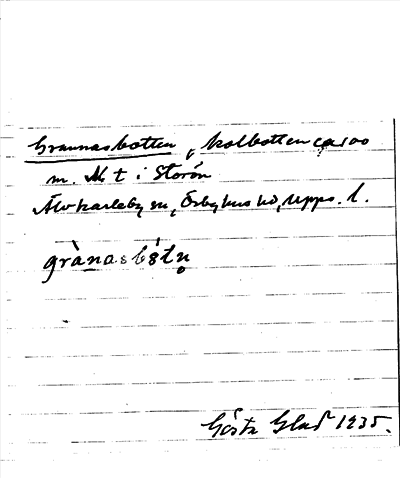 Grannasbotten, kolbotten ca 100
m. NV t i Storön
Älvkarleby sn, Örbyhus hd, Upps. l.
grànasbótn̥
Gösta Glad 1935.